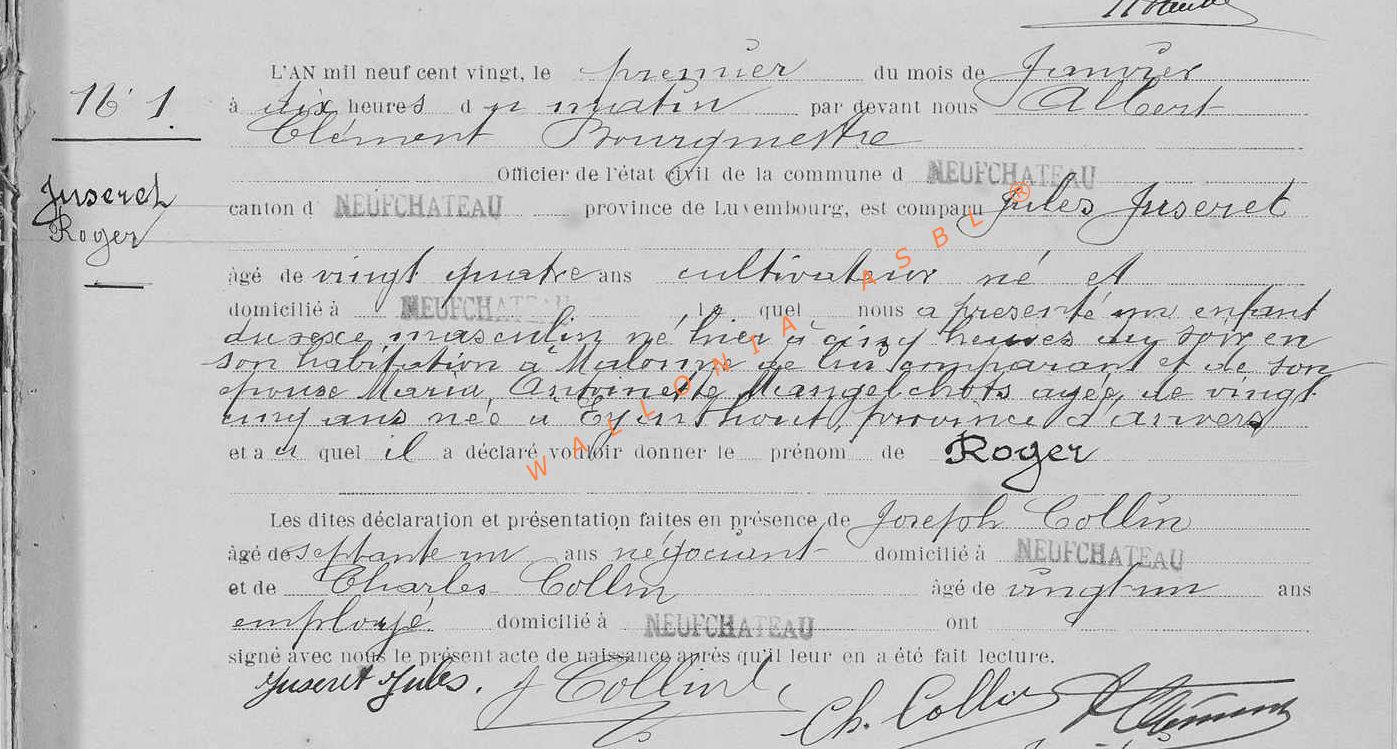 L'AN mil neuf cent vingt, le premier du mois de Janvier
No 1.
à dix heures du matin par devant nous Albert
Clément Bourgmestre
Officier de l'état civil de la commune d NEUFCHATEAU
Juseret
Roger
canton d NEUFCHATEAU province de Luxembourg, est comparu Jules Juseret
âgé de vingt quatre ans cultivateur né et
domicilié à NEUFCHATEAU le quel nous a présenté un enfant
du sexe masculin né hier à cinq heures du soir en
son habitation à Malome de lui comparant et de son
épouse Maria, Antoinette Mangelschots agée de vingt
cinq ans née à Eynthout, province d'Anvers
et a u quel il a déclaré vouloir donner le prénom de Roger
Les dites déclaration et présentation faites en présence de Joseph Collin
âgé de septante un ans négociant domicilié à NEUFCHATEAU
et de Charles Collin âgé de vingt un ans
employé domicilié à NEUFCHATEAU ont
signé avec nous le présent acte de naissance après qu'il leur en a été fait lecture.
Juseret Jules. J Collin
Ch. Collin A Clément
WALLONIA ASBL ®